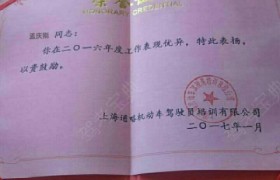 荣誉证书
HONORARY CREDENTIAL
孟庆刚 同志：
你在二〇一六年度工作表现优异，特此表扬，
以资鼓励。
上海通略机动车驾驶员培训有限公司
二〇一七年一月